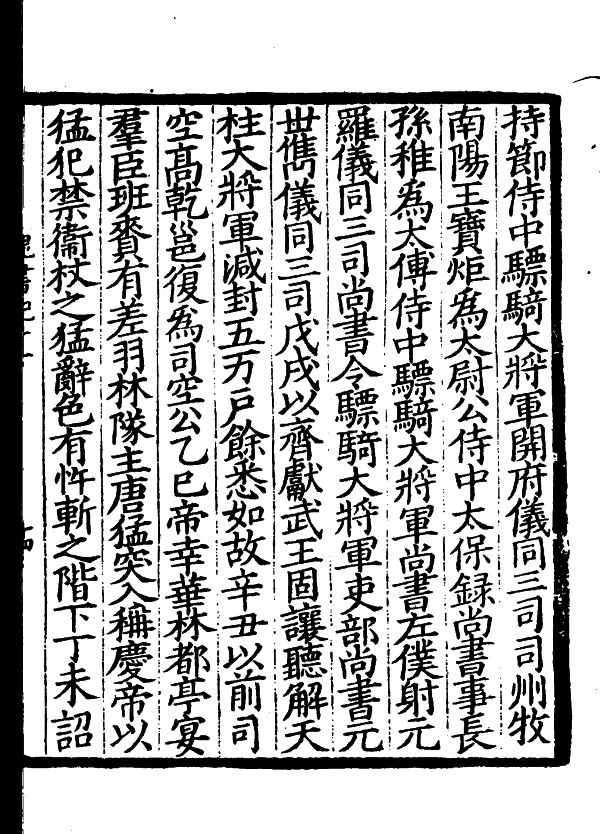 持節侍中驃騎大將軍開府儀同三司司州牧
南陽王寶炬爲太尉公侍中太保録尚書事長
孫稚爲太傅侍中驃騎大將軍尚書左僕射元
羅儀同三司尚書令驃騎大將軍吏部尚書元
世儁儀同三司戊戌以齊獻武王固讓聽解天
柱大將軍減封五万戶餘悉如故辛丑以前司
空高乾邕復爲司空公乙巳帝幸華林都亭宴
羣臣班賚有差羽林隊主唐猛突入稱慶帝以
猛犯禁衞杖之猛辭色有忤斬之階下丁未詔